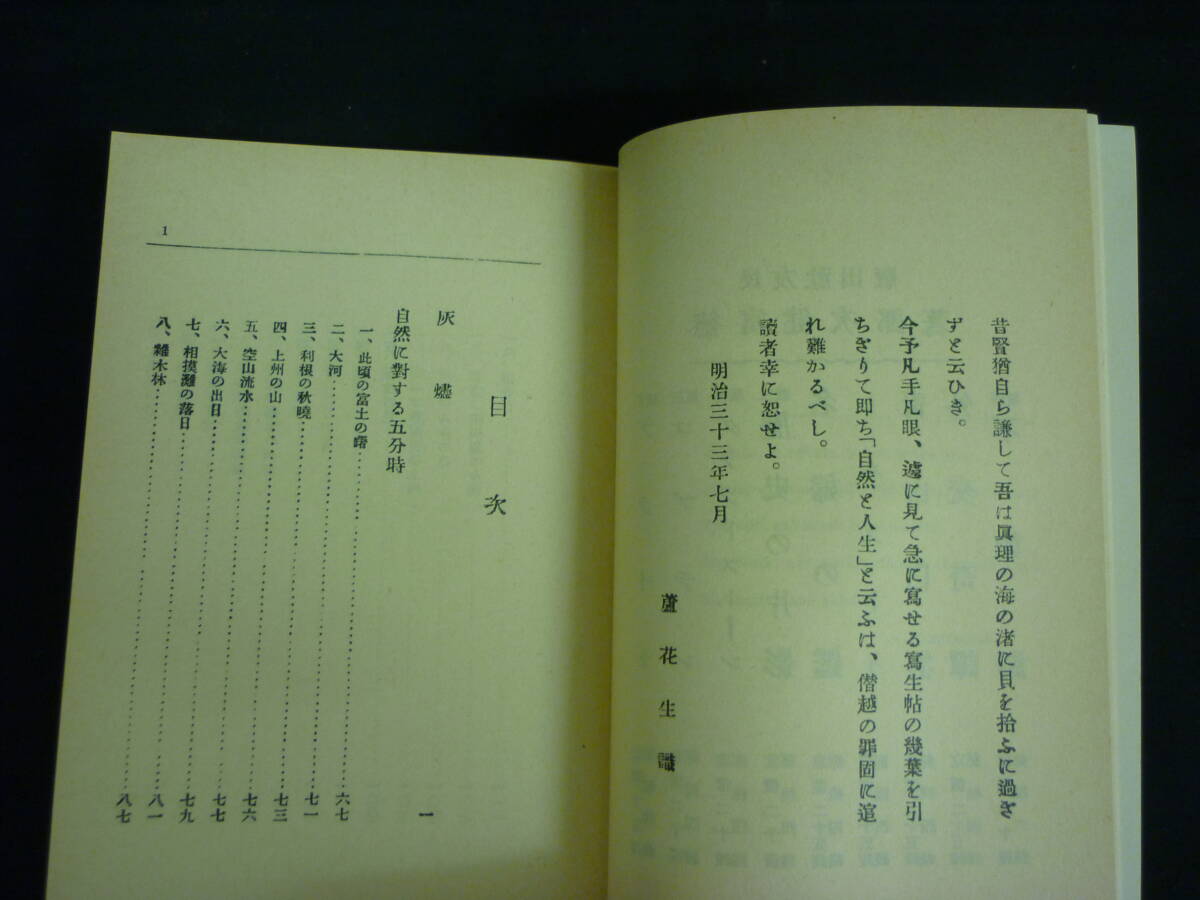 昔賢猶自ら謙して吾は眞理の海の渚に貝を拾ふに過ぎ
ずと云ひき。
今予凡手凡眼、遽に見て急に寫せる寫生帖の幾葉を引
ちぎりて即ち「自然と人生」と云ふは、僭越の罪固に逭
れ難かるべし。
讀者幸に恕せよ。
明治三十三年七月
蘆花生識
1
目次
灰燼 一
自然に對する五分時
一、此頃の富士の曙…………六七
二、大河…………七一
三、利根の秋曉…………七三
四、上州の山…………七六
五、空山流水…………七七
六、大海の出日…………七九
七、相摸灘の落日…………八一
八、雜木林…………八七